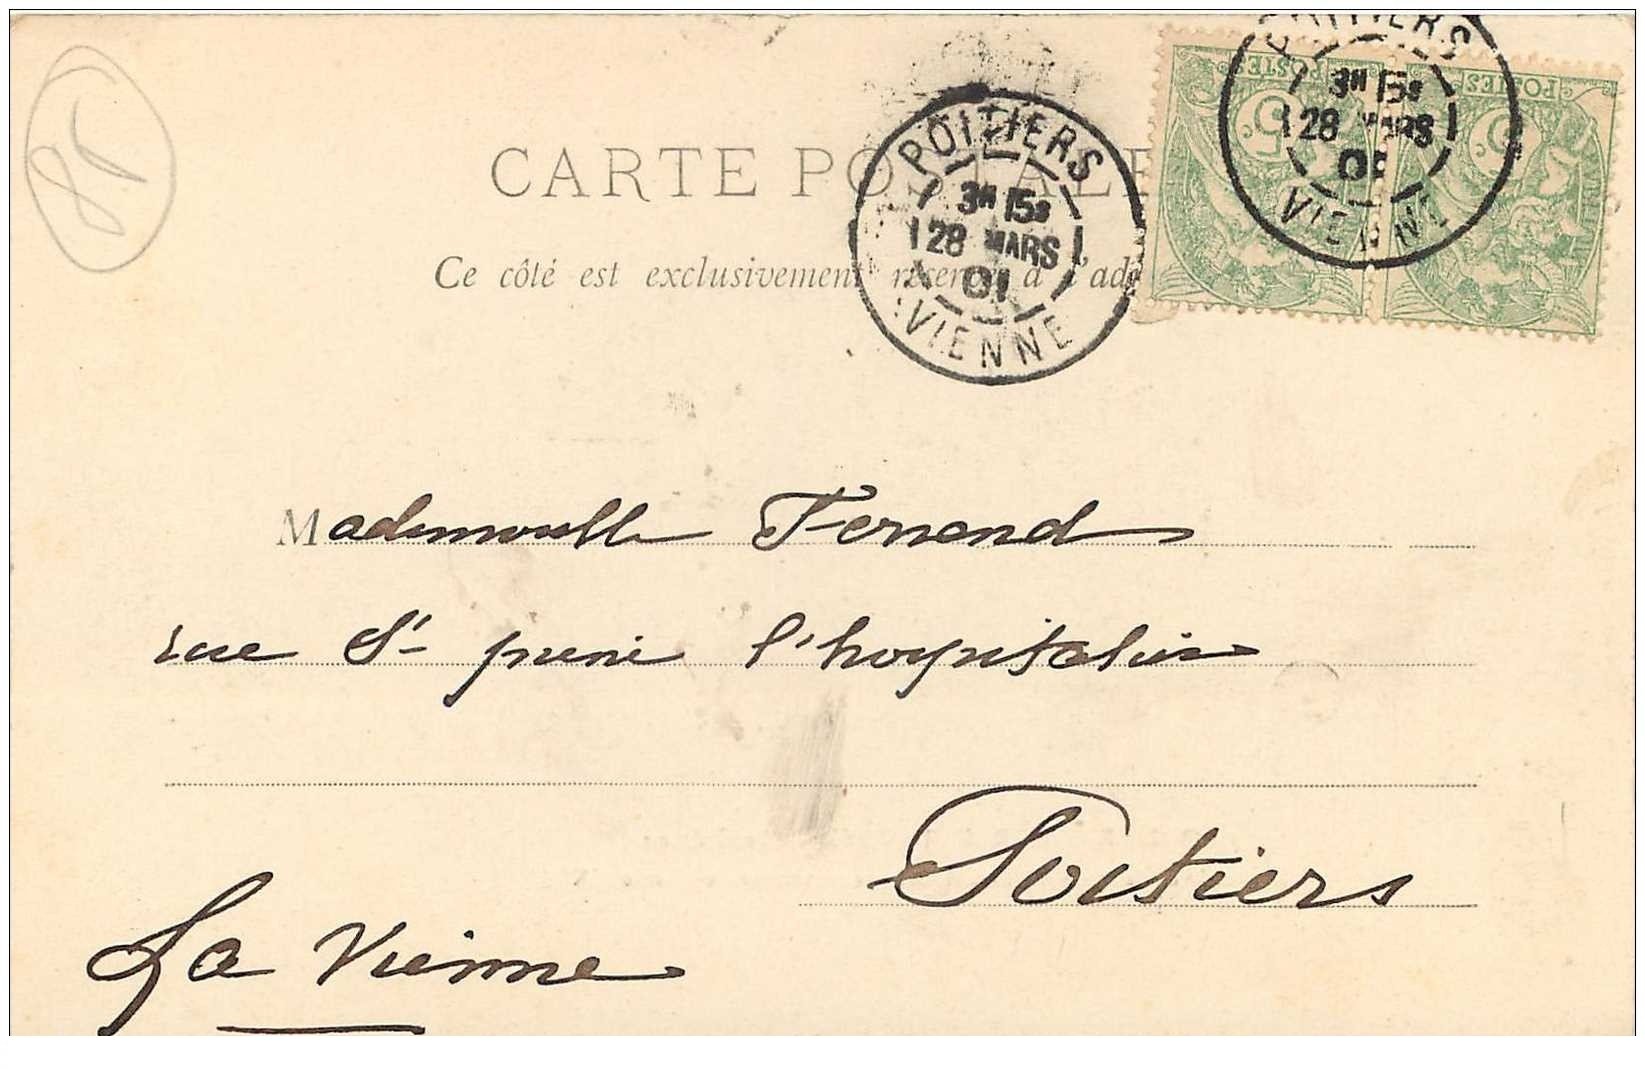 CARTE POSTALE
Ce côté est exclusivement réservé à l'ad
POITIERS
3H 15S
28 MARS
01
VIENNE
POITIERS
3H 15S
28 MARS
01
VIENNE
5c.
POSTES
5c.
POSTES
Mademoiselle Fernand
rue St pierre l'hospitalier
Poitiers
La Vienne